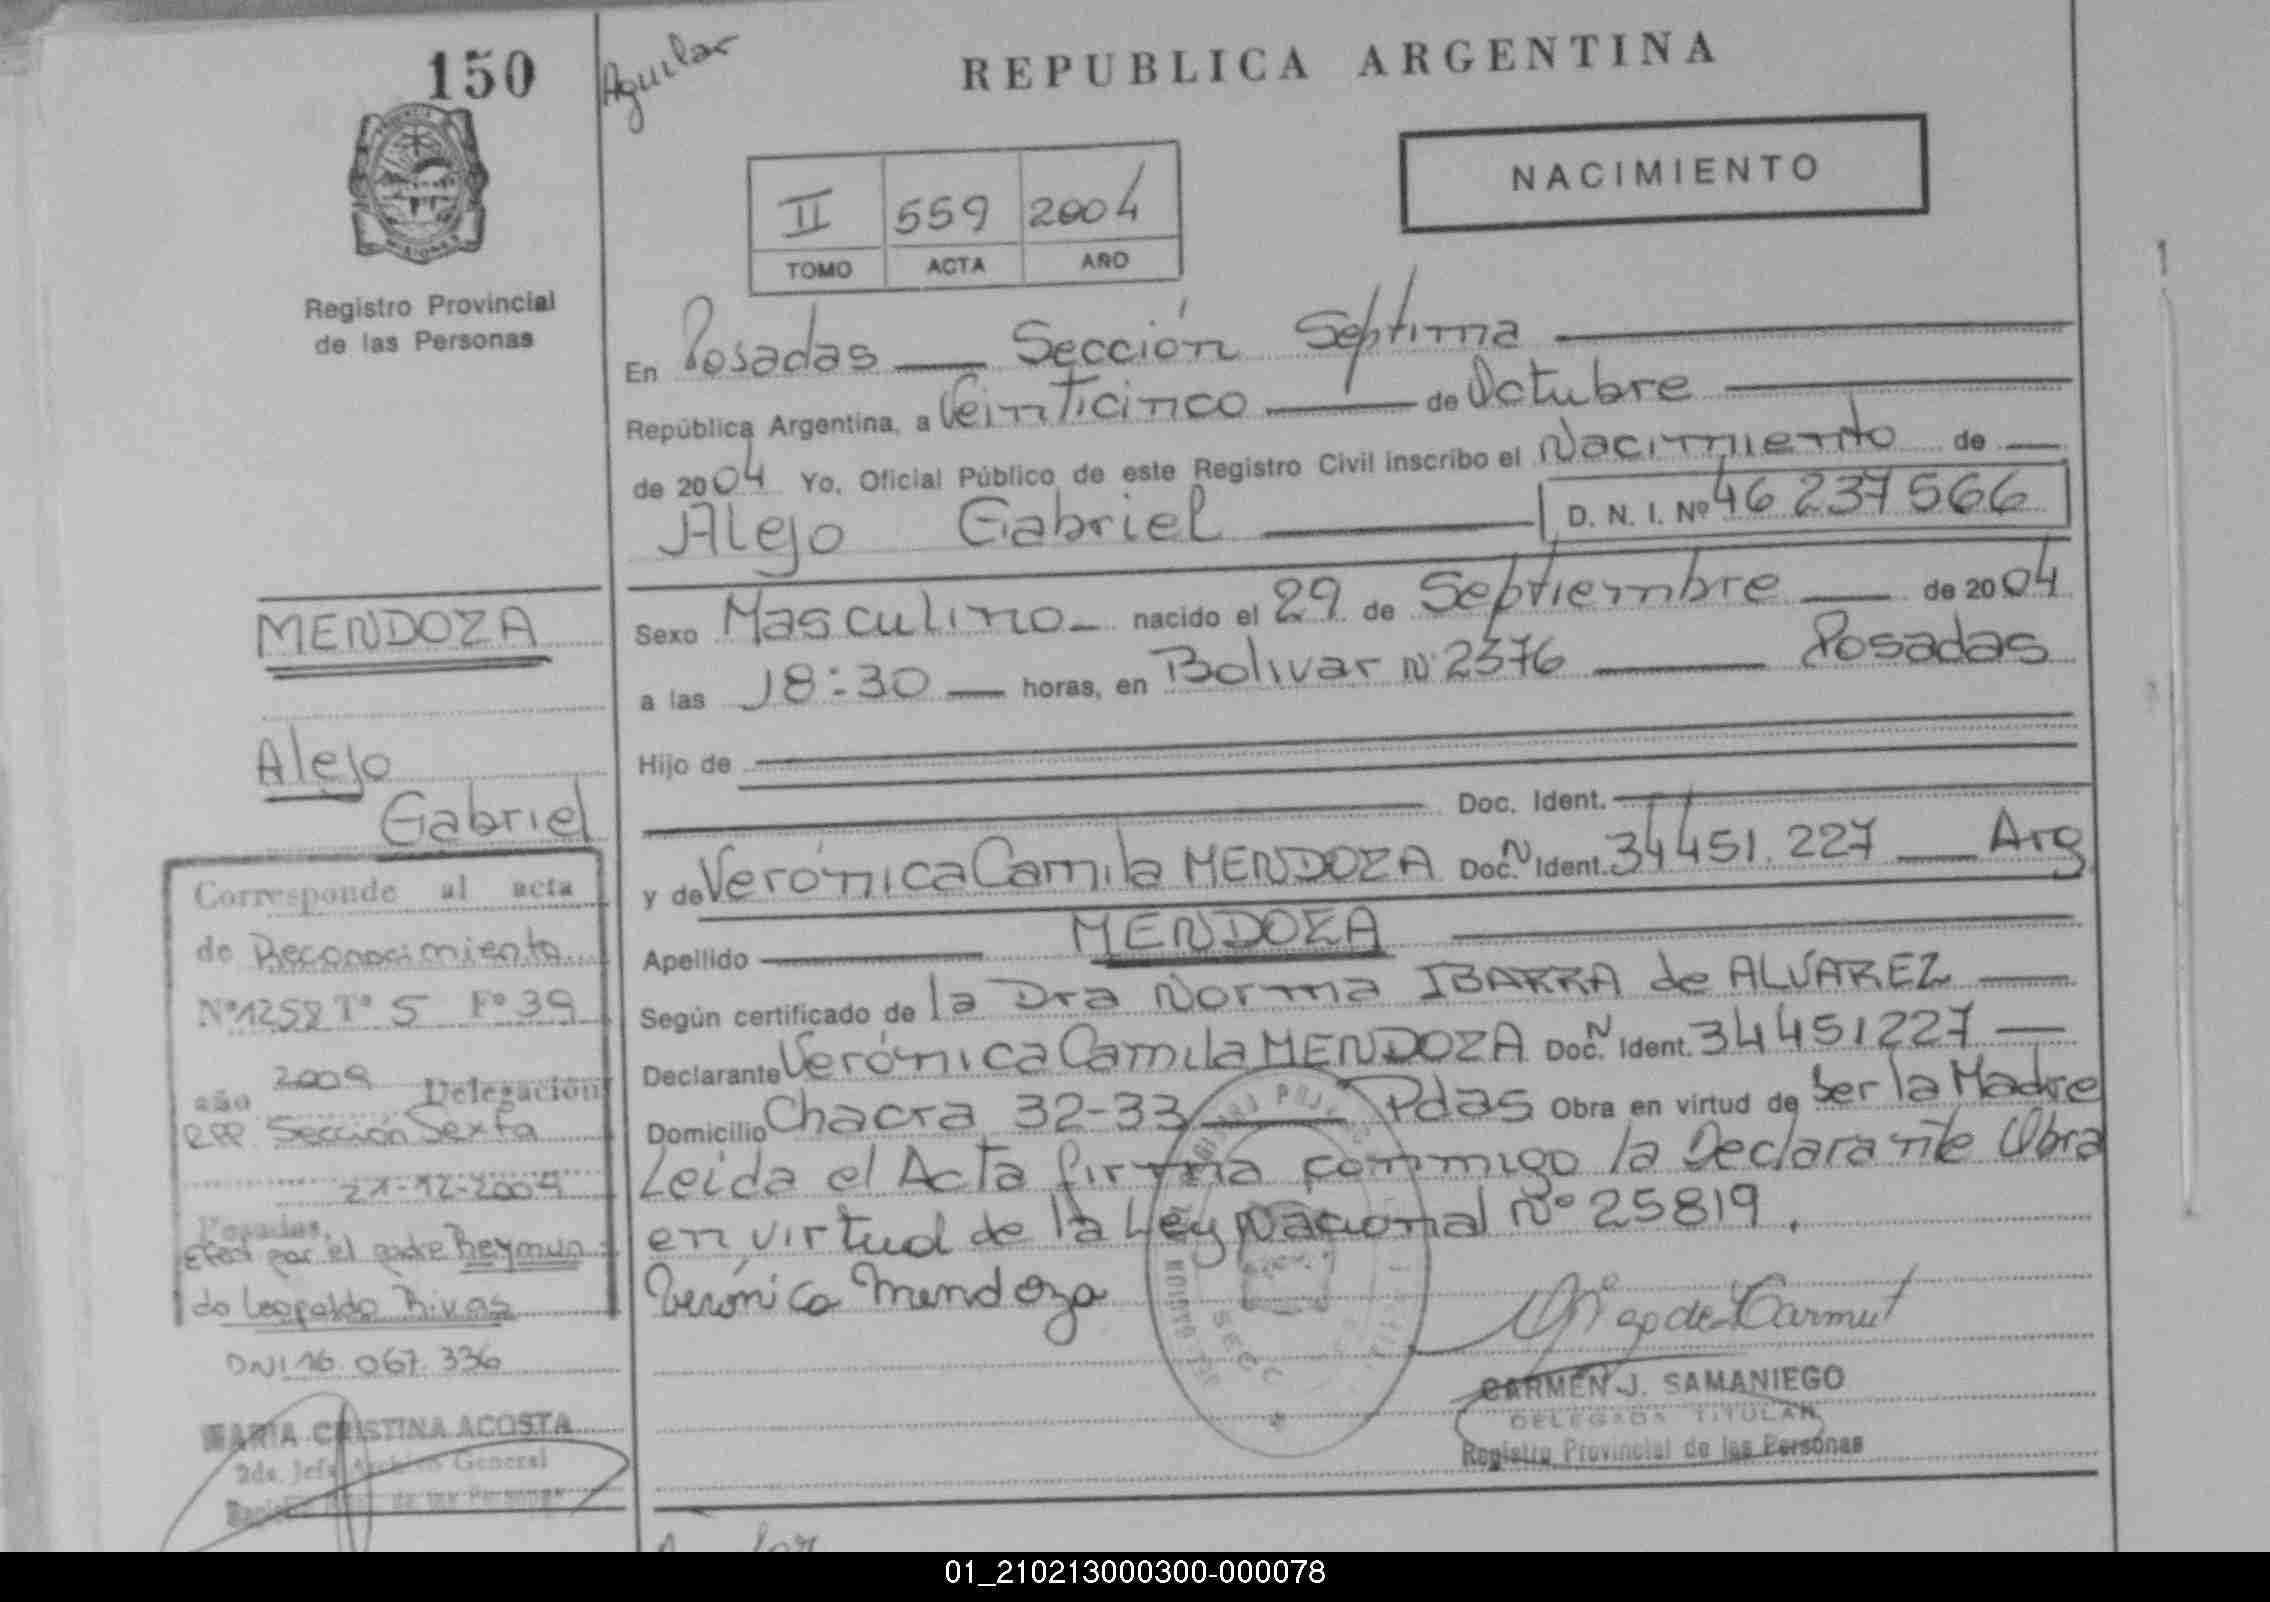 150
Aguilar
REPUBLICA ARGENTINA
NACIMIENTO
II 559 2004
TOMO ACTA AÑO
MISIONES
Registro Provincial
de las Personas
En Posadas Sección Séptima
República Argentina, a Veinticinco de Octubre
de 2004 Yo, Oficial Público de este Registro Civil inscribo el Nacimiento de
Alejo Gabriel D. N. I. Nº 46 237 566
Sexo Masculino nacido el 29 de Septiembre de 2004
a las 18:30 horas, en Bolivar Nº 2376 Posadas
Hijo de
Doc. Ident.
y de Verónica Camila MENDOZA Doc. N Ident. 34451.227 Arg
Apellido MENDOZA
Según certificado de la Dra Norma IBARRA de ALVAREZ
Declarante Verónica Camila MENDOZA Doc. N Ident. 34451227
Domicilio Chacra 32-33 Pdas Obra en virtud de Ser la Madre
Leida el Acta firma conmigo la Declarante Obra
en virtud de la Ley Nacional Nº 25819.
Verónica Mendoza
CARMEN J. SAMANIEGO
DELEGADA TITULAR
Registro Provincial de las Personas
MENDOZA
Alejo
Gabriel
Corresponde al acta
de Reconocimiento
Nº 1258 Tº 5 Fº 39
año 2009 Delegación
RPP. Sección Sexta
21-12-2009
Posadas,
Efect por el padre Reymun
do Leopoldo Rivas
DNI 16.067.336
MARIA CRISTINA ACOSTA
2da. Jefa Archivo General
de las Personas
SECC
01_210213000300-000078